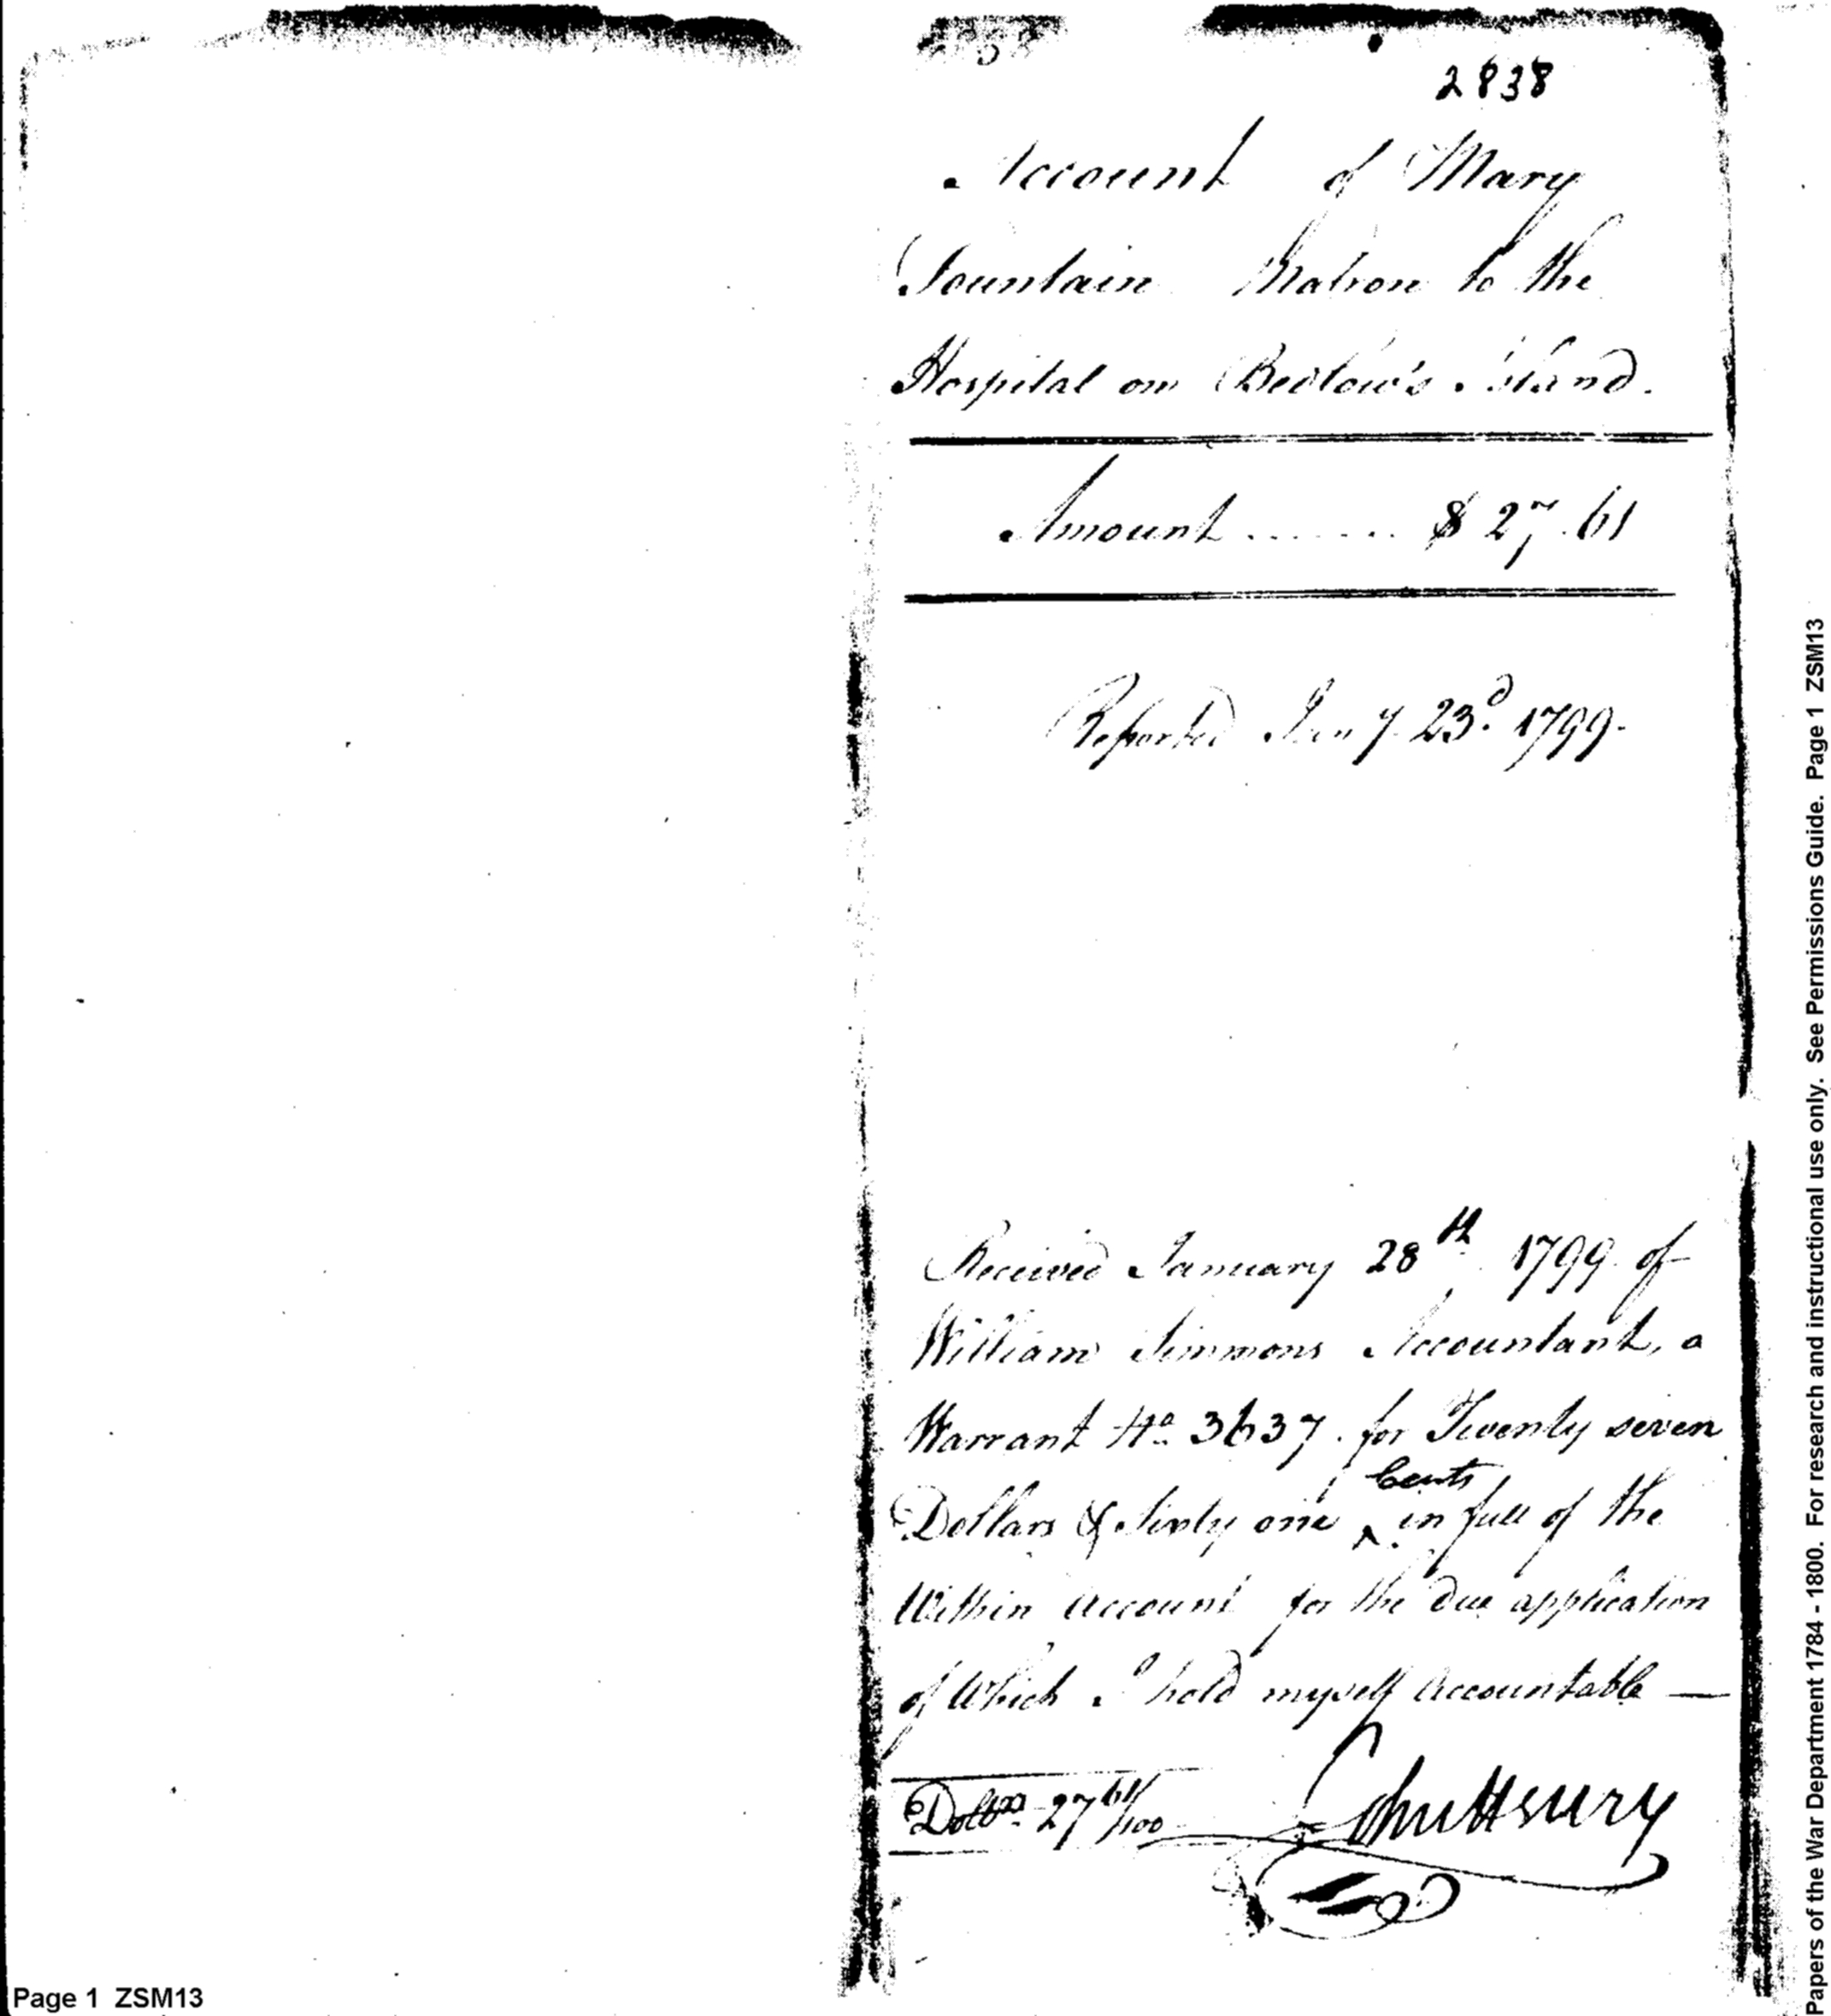 2838
Account of Mary
Fountain Matron to the
Hospital on Bedlow's Island.
Amount ....... $ 27.61
Reported Jany. 23d. 1799.
Received January 28th. 1799 of
William Simmons Accountant, a
Warrant No. 3637. for Twenty seven
Cents
Dollars & Sixty one ^ in full of the
Within account for the due application
of Which I hold myself Accountable —
Dollrs. 27 61/100 John Henry
Page 1 ZSM13
Papers of the War Department 1784 - 1800. For research and instructional use only. See Permissions Guide. Page 1 ZSM13